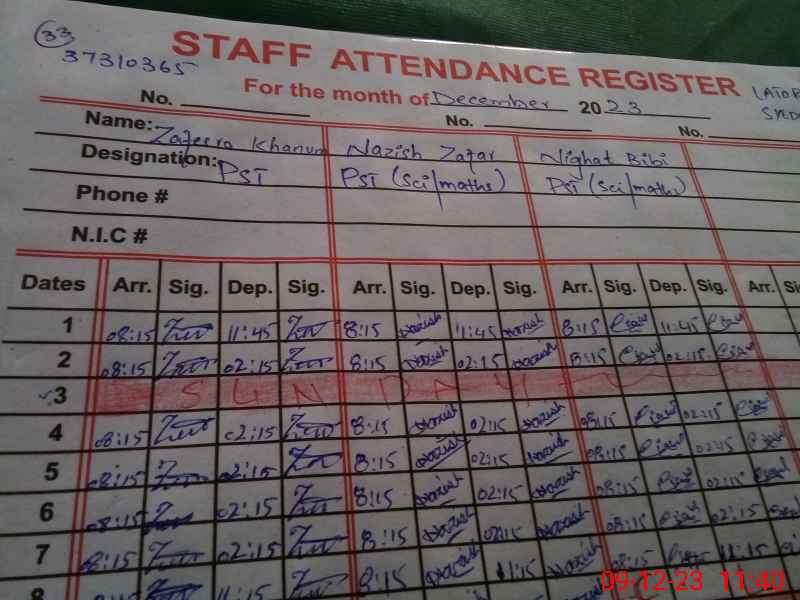 33
37310365
STAFF ATTENDANCE REGISTER
For the month of December 2023
No. No. No.
Name: Zafeera Khanum Nazish Zafar Nighat Bibi
Designation: PST PST (Sci/maths) PST (Sci/maths)
Phone #
N.I.C #
Dates Arr. Sig. Dep. Sig. Arr. Sig. Dep. Sig. Arr. Sig. Dep. Sig. Arr.
1 08:15 11:45 8:15 Nazish 11:45 Nazish 8:15 11:45
2 08:15 02:15 8:15 Nazish 02:15 Nazish 08:15 02:15
3 SUNDAY
4 08:15 02:15 8:15 Nazish 02:15 Nazish 08:15 02:15
5 08:15 02:15 8:15 Nazish 02:15 Nazish 08:15 02:15
6 08:15 02:15 8:15 Nazish 02:15 Nazish 08:15 02:15
7 08:15 02:15 8:15 Nazish 02:15 Nazish 08:15 11:15
8 11:15 8:15 Nazish 11:15 Nazish
09-12-23 11:40